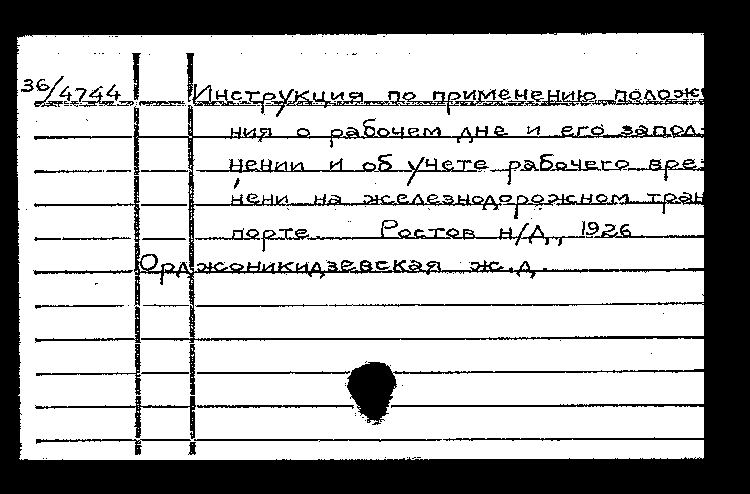 36/4744 Инструкция по применению полож
ния о рабочем дне и его запол-
нении и об учете рабочего вре-
мени на железнодорожном тран
порте. Ростов н/Д., 1926
Орджоникидзевская ж.д.